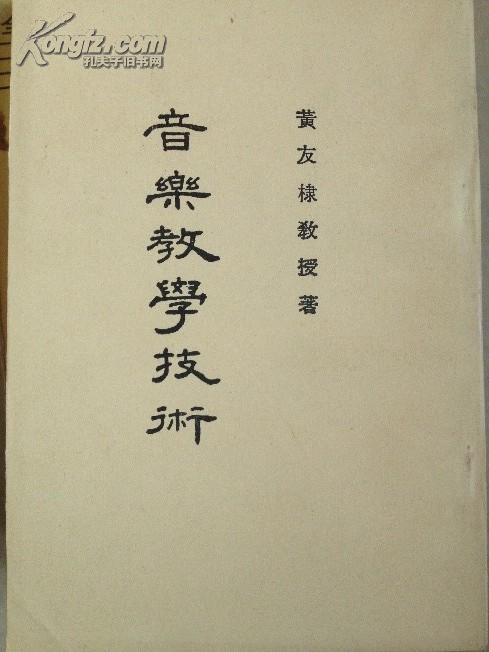 Kongfz.com
孔夫子旧书网
黃友棣教授著
音樂教學技術